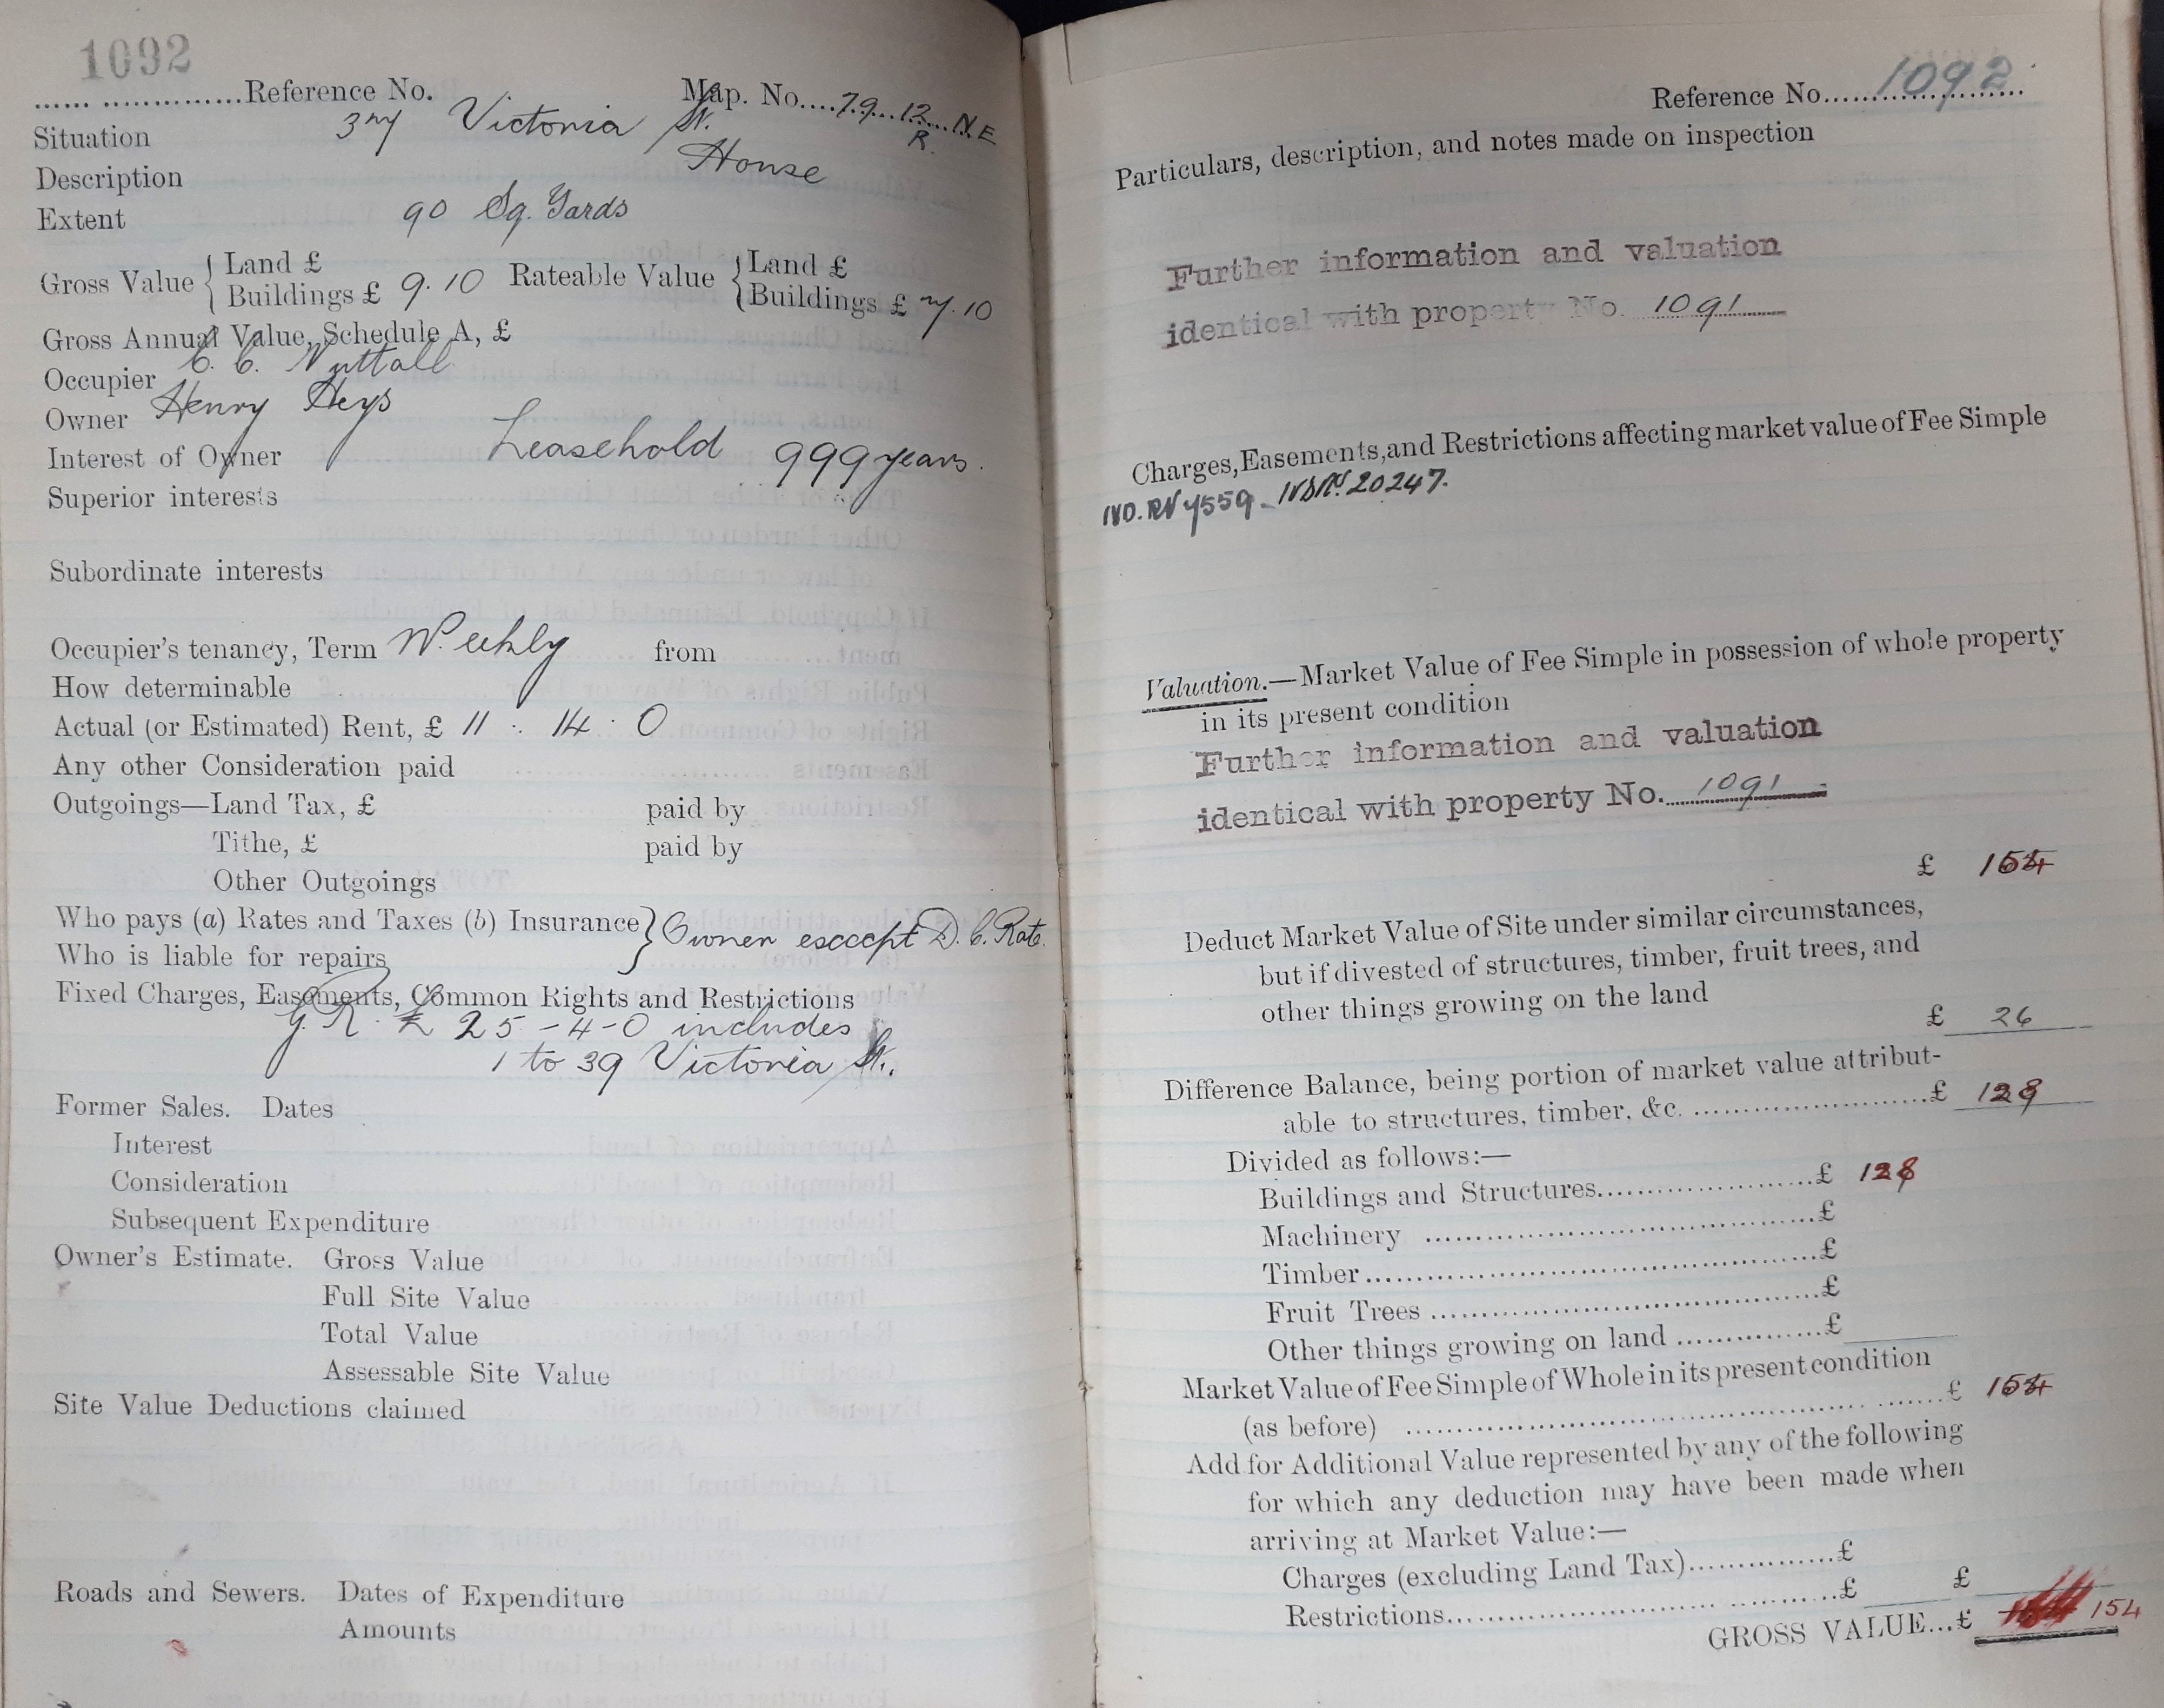 1092
.....................Reference No. Map. No....79...12...N.E
R.
Situation 37 Victoria St.
Description House
Extent 90 Sq. Yards
Gross Value { Land £ Rateable Value { Land £
Buildings £ 9.10 Buildings £ 7.10
Gross Annual Value, Schedule A, £
Occupier C. C. Nuttall
Owner Henry Heys
Interest of Owner Leasehold 999 years.
Superior interests
Subordinate interests
Occupier's tenancy, Term Weekly from
How determinable
Actual (or Estimated) Rent, £ 11 : 14 : 0
Any other Consideration paid
Outgoings—Land Tax, £ paid by
Tithe, £ paid by
Other Outgoings
Who pays (a) Rates and Taxes (b) Insurance } Owner except D. C. Rate.
Who is liable for repairs
Fixed Charges, Easements, Common Rights and Restrictions
G. R. £ 25-4-0 includes
1 to 39 Victoria St.
Former Sales. Dates
Interest
Consideration
Subsequent Expenditure
Owner's Estimate. Gross Value
Full Site Value
Total Value
Assessable Site Value
Site Value Deductions claimed
Roads and Sewers. Dates of Expenditure
Amounts
Reference No. 1092
Particulars, description, and notes made on inspection
Further information and valuation
identical with property No. 1091
Charges, Easements, and Restrictions affecting market value of Fee Simple
20247.
Valuation.—Market Value of Fee Simple in possession of whole property
in its present condition
Further information and valuation
identical with property No. 1091
£ 154
Deduct Market Value of Site under similar circumstances,
but if divested of structures, timber, fruit trees, and
other things growing on the land
£ 26
Difference Balance, being portion of market value attribut-
able to structures, timber, &c. ........................£ 128
Divided as follows:—
Buildings and Structures......................£ 128
Machinery ........................................£
Timber..............................................£
Fruit Trees ........................................£
Other things growing on land ...............£
Market Value of Fee Simple of Whole in its present condition
(as before) ........................................£ 154
Add for Additional Value represented by any of the following
for which any deduction may have been made when
arriving at Market Value:—
Charges (excluding Land Tax)...............£
Restrictions........................................£ £
GROSS VALUE...£ 154